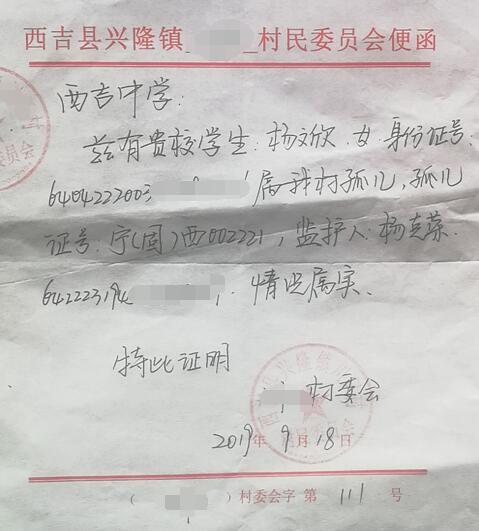 西吉县兴隆镇 村民委员会便函
西吉中学：
兹有贵校学生：杨文欣，女，身份证号：
6404222003 属我村孤儿，孤儿
证号：宁(固)西002221，监护人：杨克荣
64222319 情况属实、
特此证明
村委会
2019年9月18日
( ) 村委会字 第 111 号